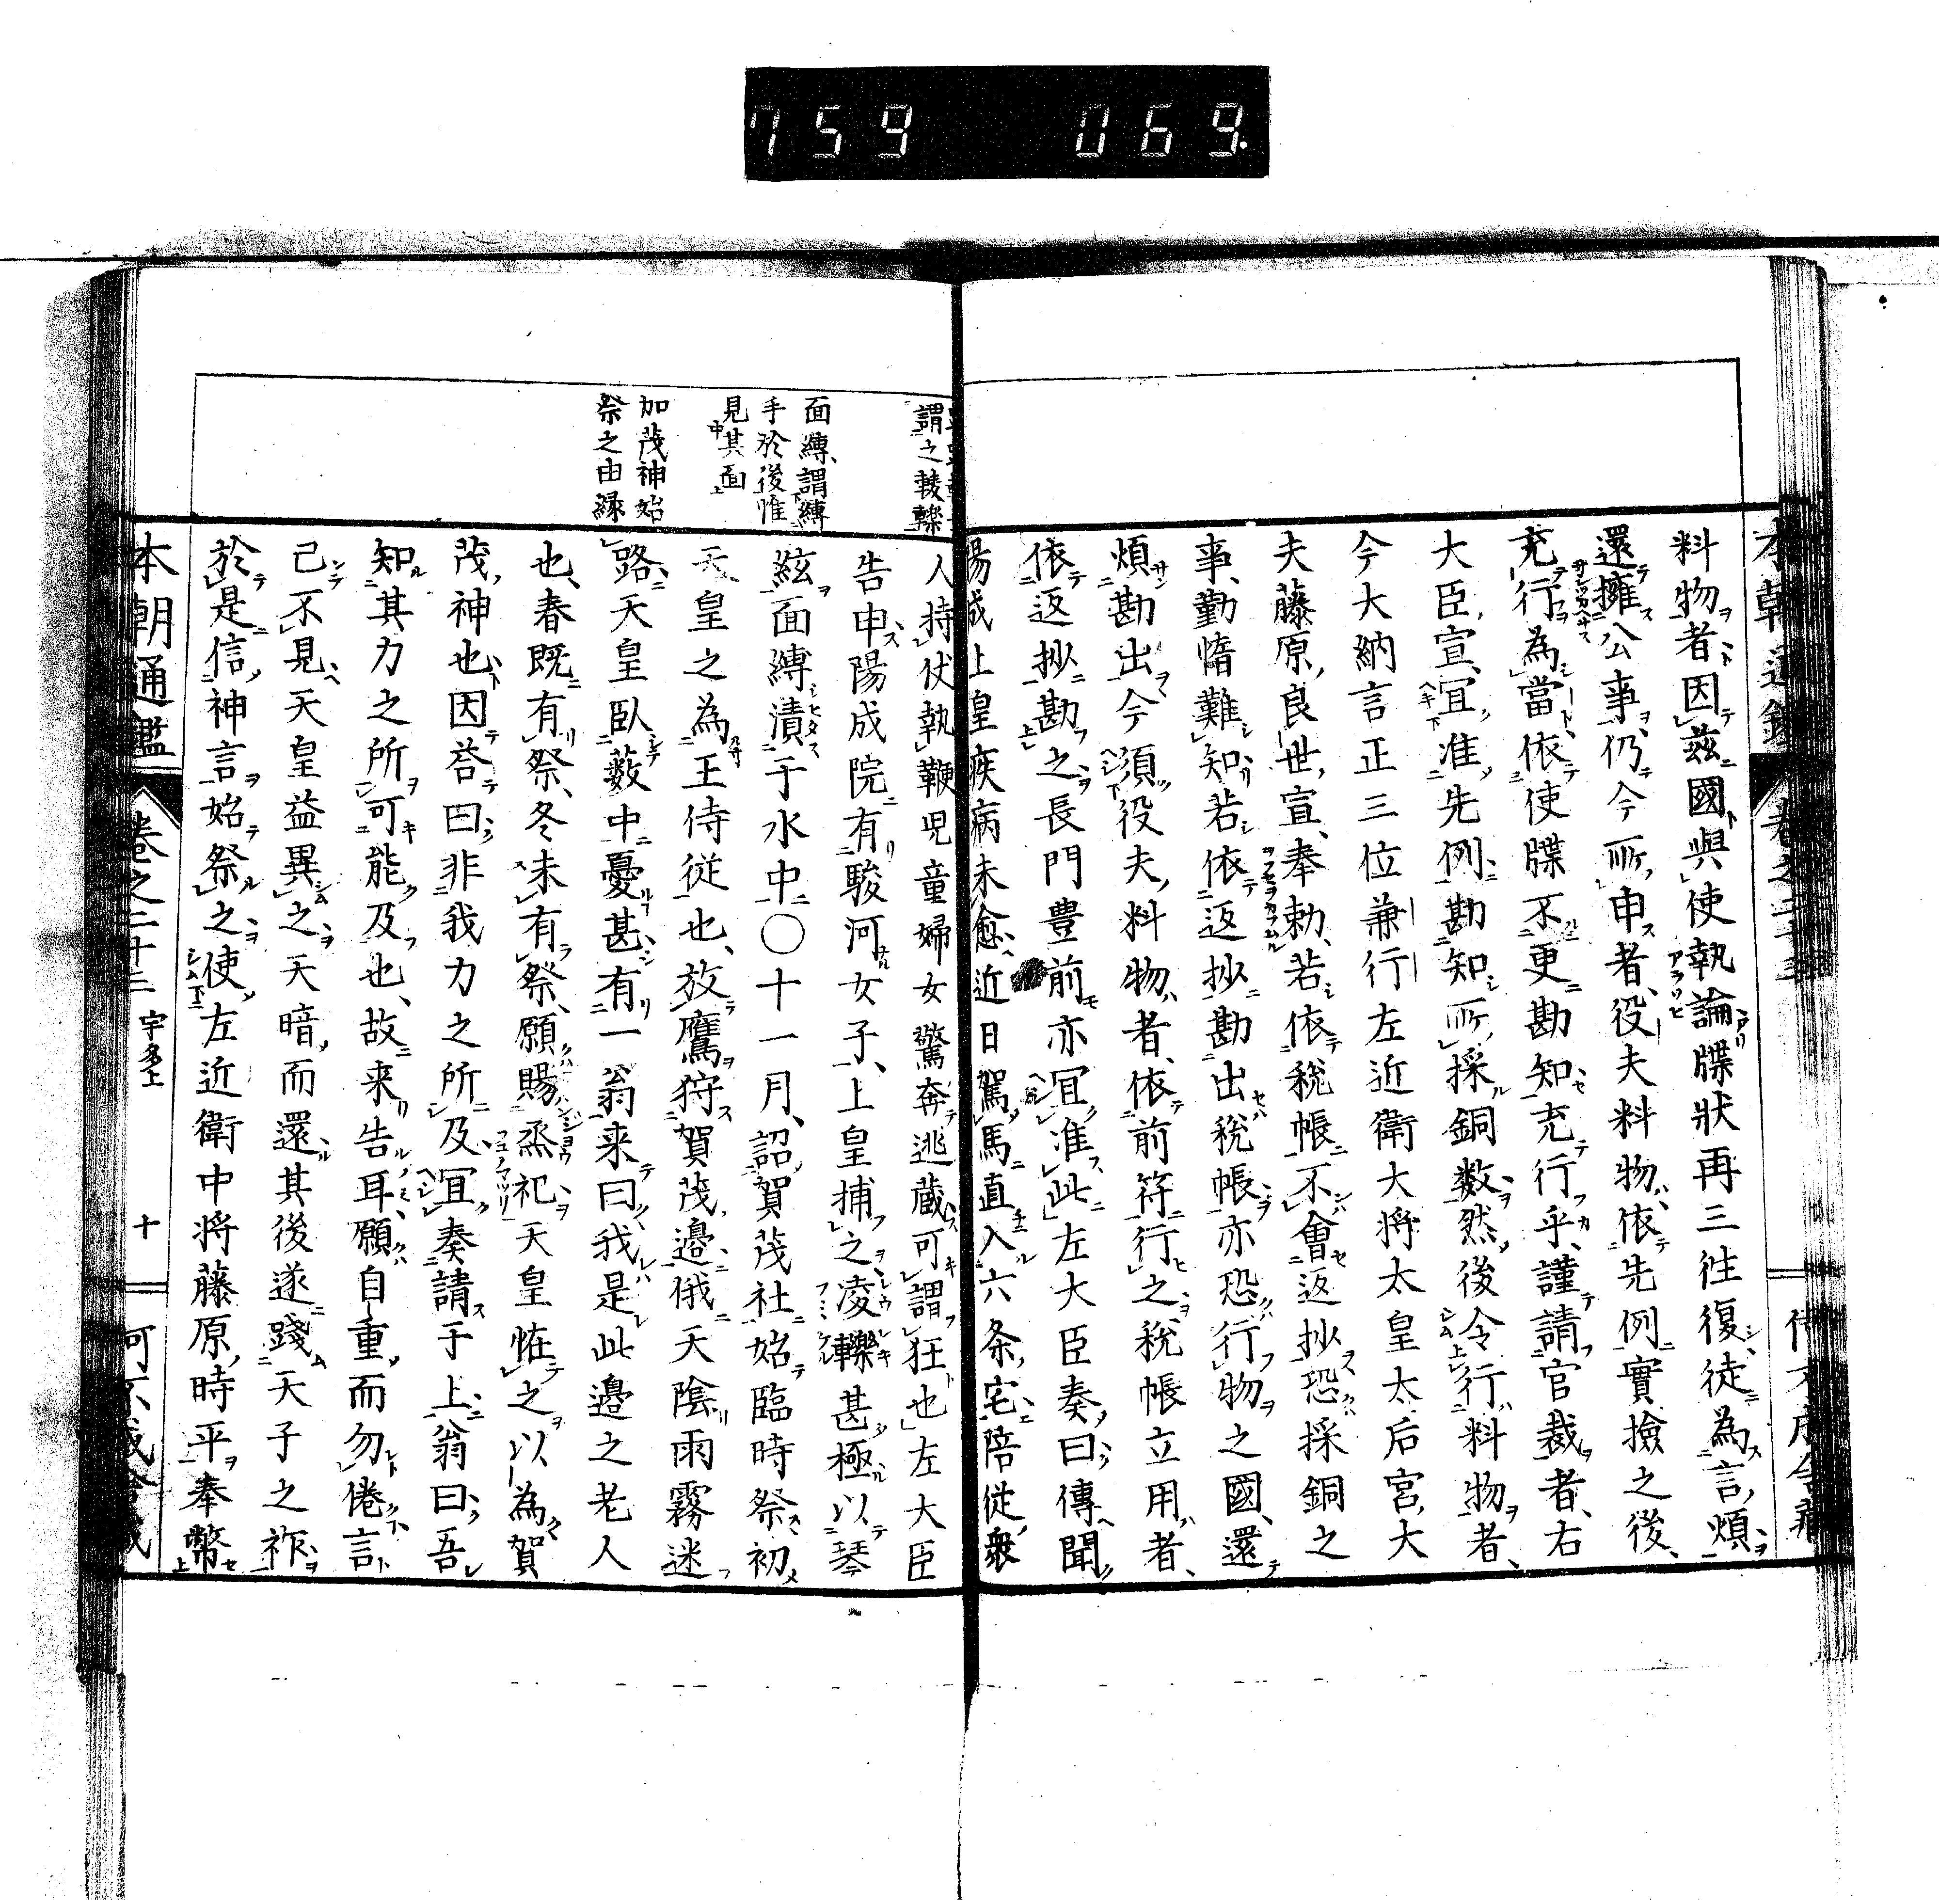 759 069.
料物者、因茲國與使執論牒狀再三往復、徒為言、煩
還擁公事、仍今所申者、役夫料物依先例實撿之後、
充行為當依使牒不更勘知充行乎、謹請官裁者、右
大臣宣、冝准先例勘知所採銅数然後令行料物者、
今大納言正三位兼行左近衛大将太皇太后宮大
夫藤原良世宣、奉勅、若依税帳不會返抄恐採銅之
事、勤惰難知若依返抄勘出税帳亦恐行物之國、還
煩勘出今須役夫料物者、依前符行之、税帳立用者、
依返抄勘之長門豊前亦冝准此左大臣奏曰傳聞
陽成上皇疾病未愈近日駕馬直入六条宅陪従衆
謂之輘轢
面縛、謂縛
手於後惟
見其面
加茂神始
祭之由縁
人持伏執鞭児童婦女驚奔逃蔵可謂狂也左大臣
告申陽成院有駿河女子、上皇捕之凌轢甚極以琴
絃面縛漬于水中〇十一月、詔賀茂社始臨時祭初
天皇之為王侍従也、放鷹狩賀茂邉俄天陰雨霧迷
路天皇臥藪中憂甚有一翁来曰我是此邉之老人
也、春既有祭、冬未有祭、願賜烝祀天皇恠之以為賀
茂神也因答曰非我力之所及冝奏請于上翁曰吾
知其力之所可能及也、故来告耳、願自重而勿倦言
已不見天皇益異之天暗而還其後遂踐天子之祚
於是信神言始祭之使左近衛中将藤原時平奉幣
本朝通鑑 卷之二十三 宇多上 十